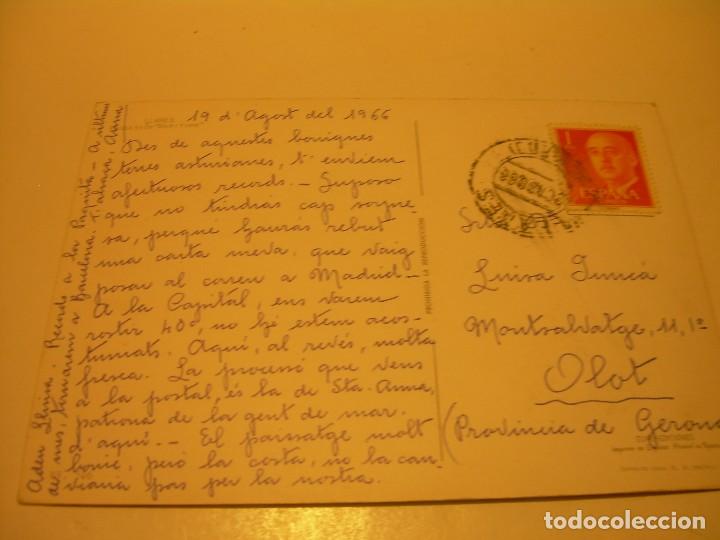 19 d'Agost del 1966
Des de aquestes boniques
terres asturianes, t'enviem
afectuosos records. - Suposo
que no tindràs cap sorpre-
sa, perque hauràs rebut
una carta meva, que vaig
posar al correu a Madrid -
A la Capital, ens varem
rostir 40º, no hi estem acos-
tumats. Aquí, al revés, molta
fresca. La processó que veus
a la postal, és la de Sta. Anna,
patrona de la gent de mar.
d'aquí. - El paisatge molt
bonic, però la costa, no la can-
viaria pas per la nostra.
Adeu Lluisa. Records a la Paquita - A últims
de mes, tornarem a Barcelona. T'abraça, Anna
PROHIBIDA LA REPRODUCCION
1
ESPAÑA
Srta.
Luisa
Montsalvatge, 11, 1º
Olot
(Provincia de Gerona
todocoleccion